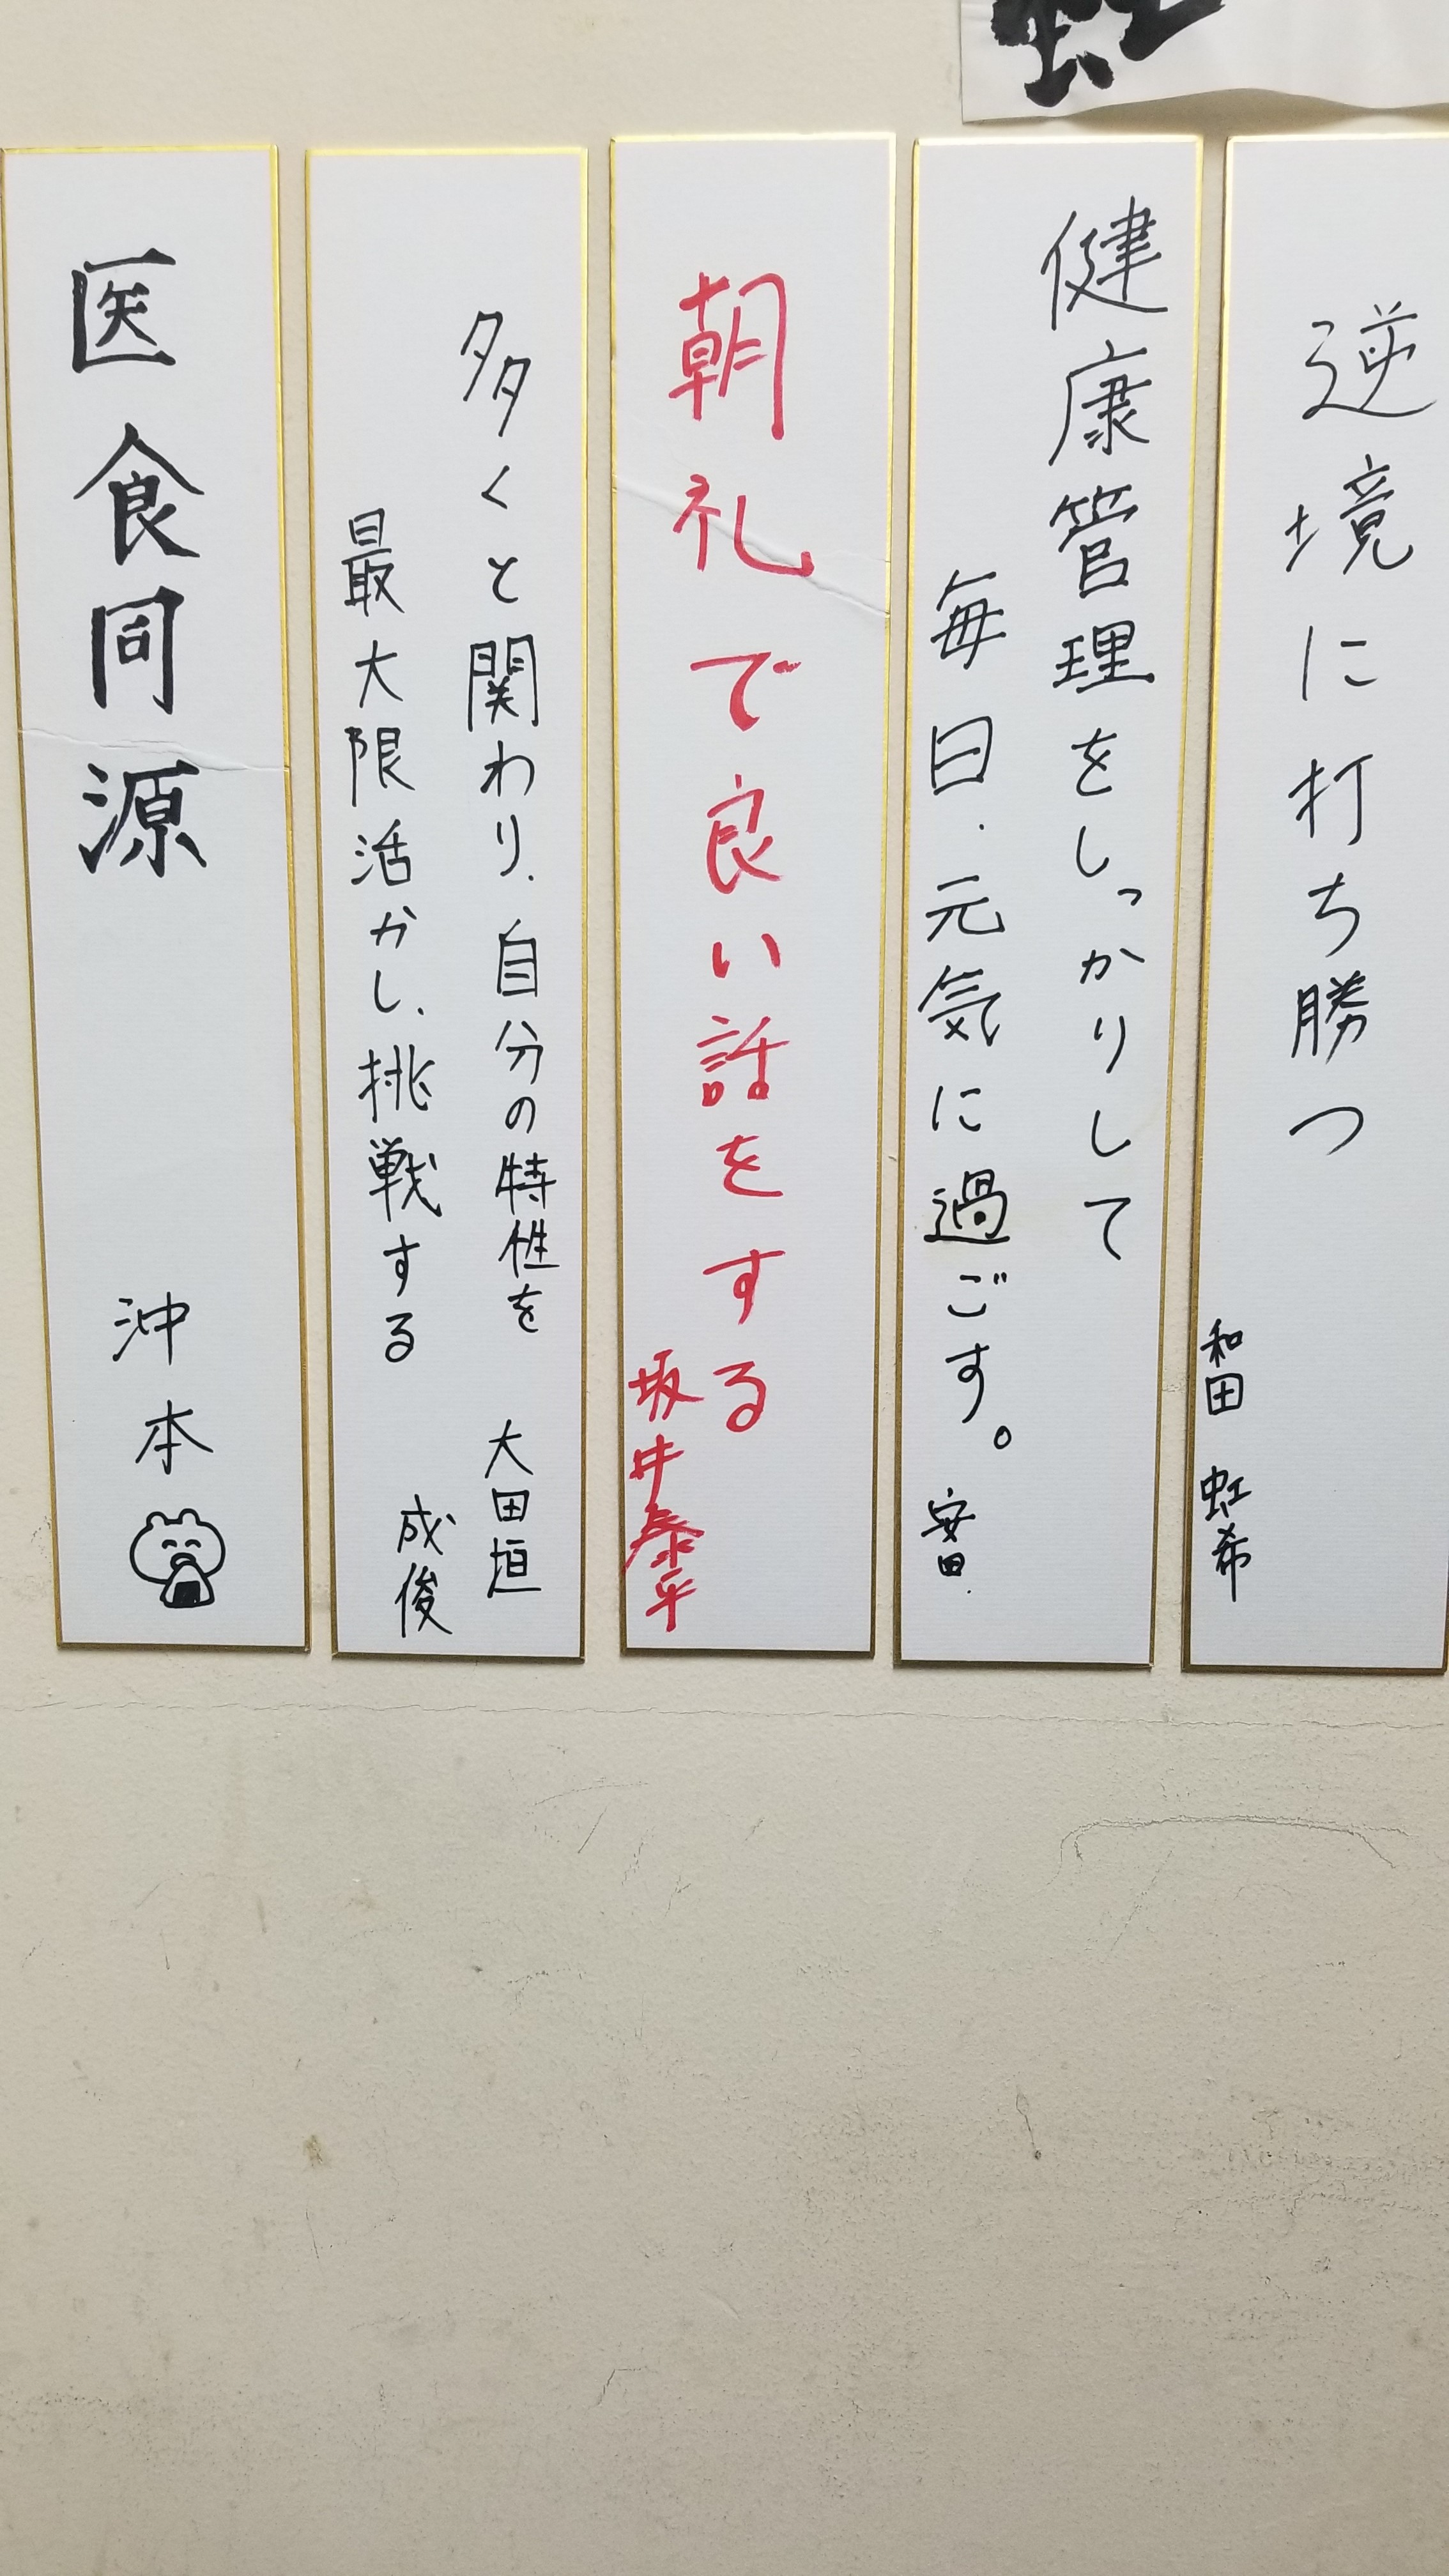 逆境に打ち勝つ
和田 虹希
健康管理をしっかりして
毎日.元気に過ごす。
安田.
朝礼で良い話をする
坂井泰平
多くと関わり、自分の特性を
最大限活かし、挑戦する
大田垣
成俊
医食同源
沖本